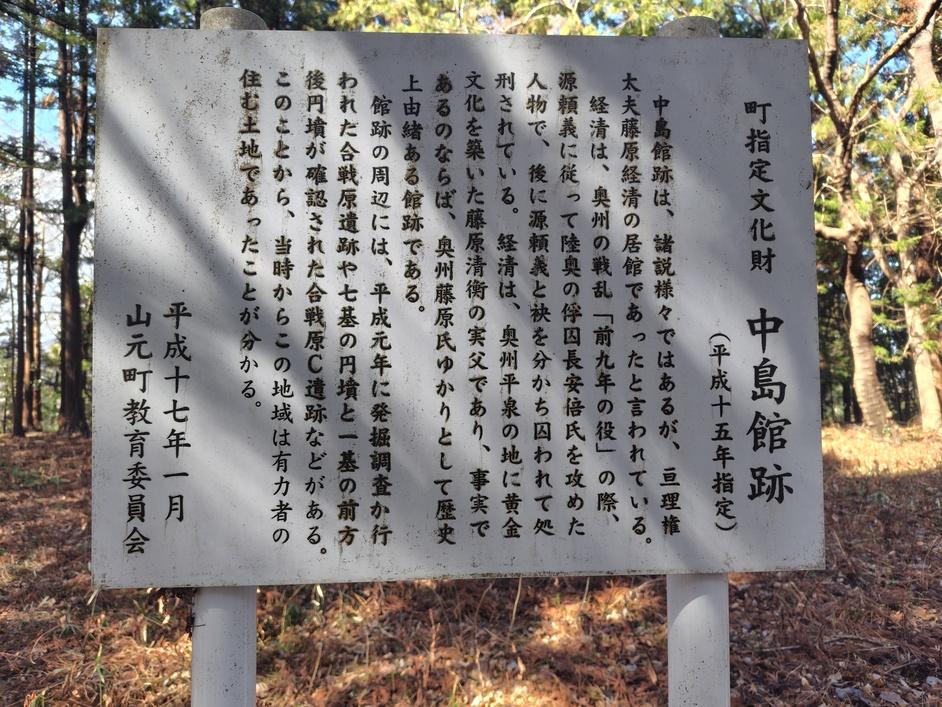 町指定文化財　中島館跡
（平成十五年指定）
中島館跡は、諸説様々ではあるが、亘理権
太夫藤原経清の居館であったと言われている。
経清は、奥州の戦乱「前九年の役」の際、
源頼義に従って陸奥の俘囚長安倍氏を攻めた
人物で、後に源頼義と袂を分かち囚われて処
刑されている。経清は、奥州平泉の地に黄金
文化を築いた藤原清衡の実父であり、事実で
あるのならば、奥州藤原氏ゆかりとして歴史
上由緒ある館跡である。
館跡の周辺には、平成元年に発掘調査が行
われた合戦原遺跡や七基の円墳と一基の前方
後円墳が確認された合戦原C遺跡などがある。
このことから、当時からこの地域は有力者の
住む土地であったことが分かる。
平成十七年一月
山元町教育委員会